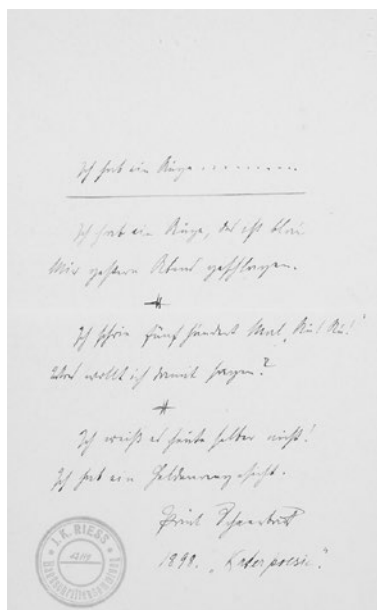 Ich hab ein Auge..........
Ich hab ein Auge, das ist blau
Mir gestern Abend geschlagen.
Ich schrie fünf hundert Mal „Au! Au!“
Was wollt ich damit sagen?
Ich weiß es heute selber nicht!
Ich hab ein Heldenangesicht.
Paul Scheerbart
1898. „Katerpoesie“.
I. K. RIESS